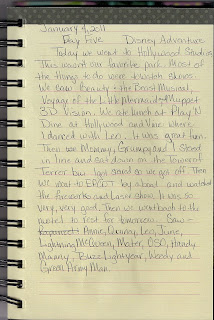 January 4, 2011
Day Five Disney Adventure
Today we went to Hollywood Studios
This wasn't our favorite park. Most of
the things to do were to watch shows.
We saw Beauty + the Beast Musical,
Voyage of the Little Mermaid + Muppet
3D Vision. We ate lunch at Play N
Dine at Hollywood and Vine where
I danced with Leo. It was great fun.
Then me Mommy, Grumpy and I stood
in line and sat down on the Tower of
Terror but I got scared so we got off. Then
we went to EPCOT by a boat and watched
the fireworks and laser show. It was so
very, very good. Then we went back to the
motel to rest for tomorrow. Saw -
Annie, Quincy, Leo, June,
Lightning McQueen, Mater, OSO, Handy
Manny, Buzz Lightyear, Woody and
Green Army Man.